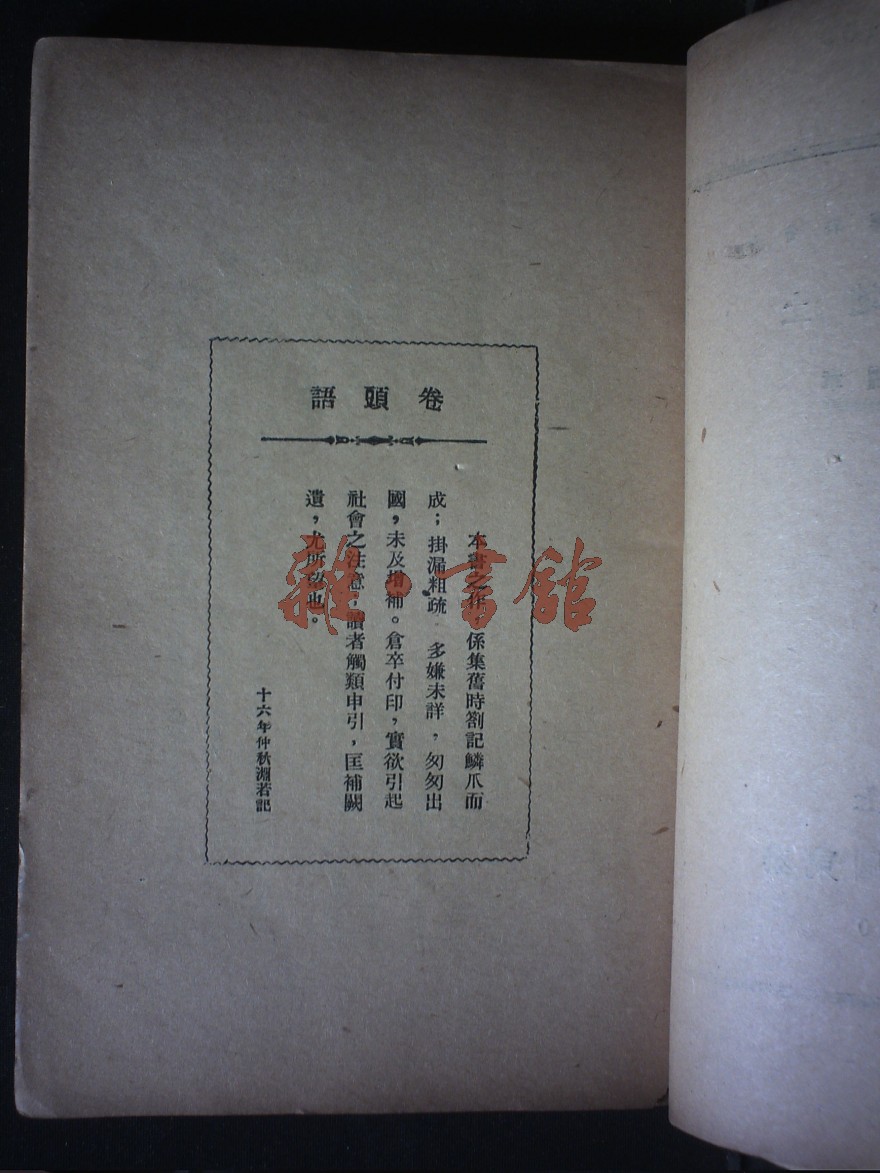 卷頭語
本書之作,係集舊時劄記鱗爪而
成;掛漏粗疏 多嫌未詳,匆匆出
國,未及增補。倉卒付印,實欲引起
社會之注意,讀者觸類申引,匡補闕
遺,尤所望也。
十六年仲秋淵若記
雜·書館